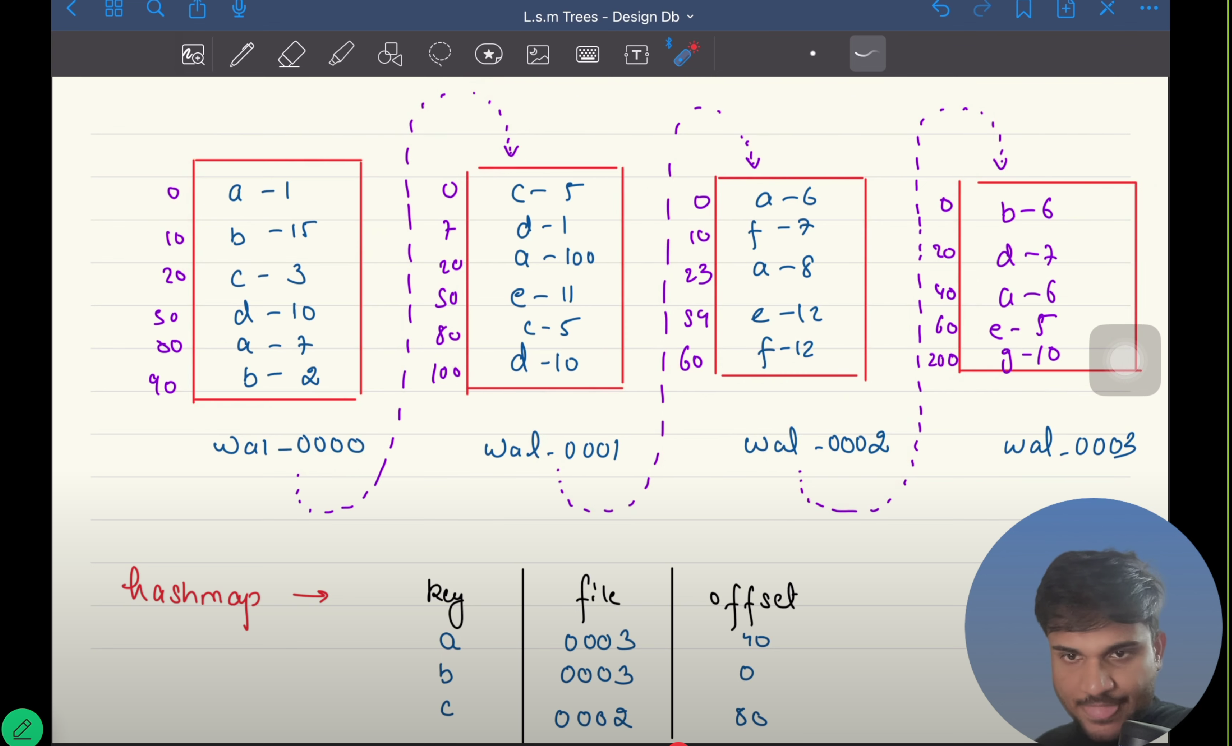 L.s.m Trees - Design Db
T
0 a - 1
10 b - 15
20 c - 3
50 d - 10
80 a - 7
90 b - 2
wal_0000
0 c - 5
7 d - 1
20 a - 100
50 e - 11
80 c - 5
100 d - 10
wal_0001
0 a - 6
10 f - 7
23 a - 8
59 e - 12
60 f - 12
wal_0002
0 b - 6
20 d - 7
40 a - 6
60 e - 5
200 g - 10
wal_0003
hashmap → key file offset
a 0003 40
b 0003 0
c 0002 80